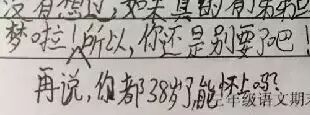 没有想过，如果真的有来来回
梦啦！所以，你还是别要了吧！
再说，你都38岁了能怀上吗？
三年级语文期末